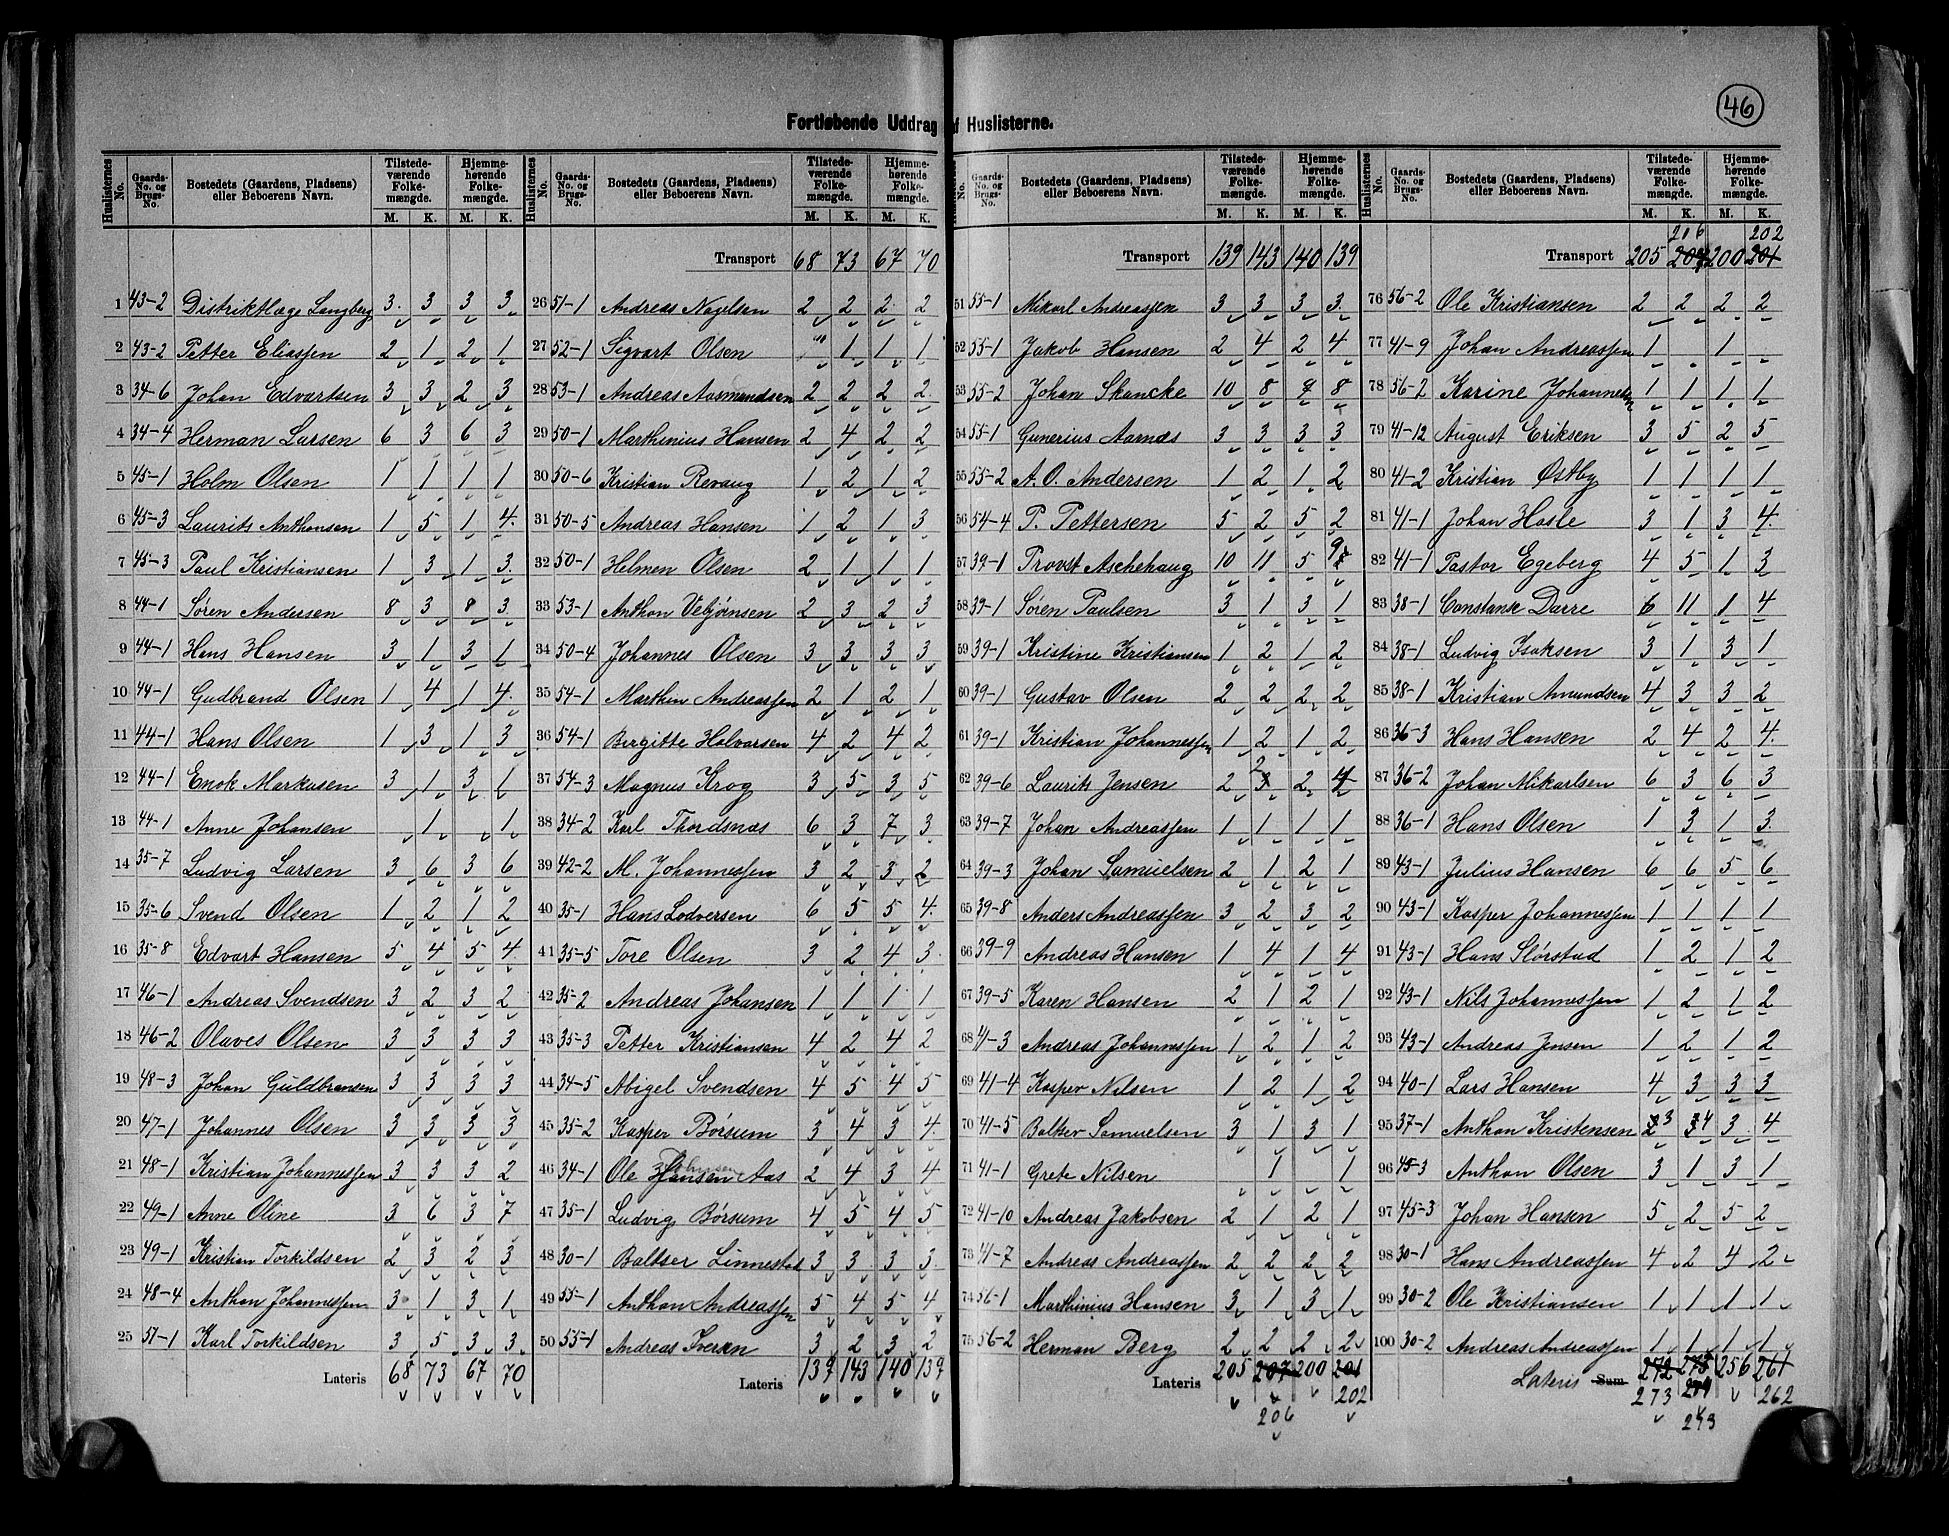 46
Fortløbende Uddrag af Huslisterne.
Huslisternes No. Gaards-No. og Brugs-No. Bostedets (Gaardens, Pladsens) eller Beboerens Navn. Tilstedeværende Folkemængde. M. K. Hjemmehørende Folkemængde. M. K.
1 43-2 Distriktlæge Langberg 3 3 3 3
2 43-2 Petter Eliassen 2 1 2 1
3 34-6 Johan Edvartsen 3 3 2 3
4 34-4 Herman Larsen 6 3 6 3
5 45-1 Holm Olsen 1 1 1 1
6 45-3 Laurits Anthonsen 1 5 1 4
7 45-3 Paul Kristiansen 1 3 1 3
8 44-1 Søren Andersen 8 3 8 3
9 44-1 Hans Hansen 3 1 3 1
10 44-1 Gudbrand Olsen 1 4 1 4
11 44-1 Hans Olsen 1 3 1 3
12 44-1 Enok Markusen 3 1 3 1
13 44-1 Anne Johansen 1 1
14 35-7 Ludvig Larsen 3 6 3 6
15 35-6 Svend Olsen 1 2 1 2
16 35-8 Edvart Hansen 5 4 5 4
17 46-1 Andreas Svendsen 3 2 3 2
18 46-2 Olaves Olsen 3 3 3 3
19 48-3 Johan Guldbransen 3 3 3 3
20 47-1 Johannes Olsen 3 3 3 3
21 48-1 Kristian Johannessen 3 3 3 2
22 49-1 Anne Oline 3 6 3 7
23 49-1 Kristian Torkildsen 2 3 2 3
24 48-4 Anthon Johannessen 3 1 3 1
25 51-1 Karl Torkildsen 3 5 3 3
Lateris 68 73 67 70
Huslisternes No. Gaards-No. og Brugs-No. Bostedets (Gaardens, Pladsens) eller Beboerens Navn. Tilstedeværende Folkemængde. M. K. Hjemmehørende Folkemængde. M. K.
Transport 68 73 67 70
26 51-1 Andreas Nagelsen 2 2 2 2
27 52-1 Sigvart Olsen " 1 1 1
28 53-1 Andreas Aasmundsen 2 2 2 2
29 50-1 Marthinius Hansen 2 4 2 2
30 50-6 Kristian Revaug 1 2 1 2
31 50-5 Andreas Hansen 1 2 1 3
32 50-1 Helmen Olsen 2 1 1 1
33 53-1 Anthon Vebjørnsen 2 3 2 3
34 50-4 Johannes Olsen 3 3 3 3
35 54-1 Marthin Andreassen 2 1 2 1
36 54-1 Bergitte Halvorsen 4 2 4 2
37 54-3 Magnus Krog 3 5 3 5
38 34-2 Karl Thordsnæs 6 3 7 3
39 42-2 M. Johannessen 3 2 3 2
40 35-1 Hans Lodversen 6 5 5 4
41 35-5 Tore Olsen 3 2 4 3
42 35-2 Andreas Johansen 1 1 1 1
43 35-3 Petter Kristiansen 4 2 4 2
44 34-5 Abigel Svendsen 4 5 4 5
45 35-2 Kasper Børsum 3 4 3 4
46 34-1 Ole Hansen Aas 2 4 3 4
47 35-1 Ludvig Børsum 4 5 4 5
48 30-1 Baltser Linnestad 3 3 3 3
49 55-1 Anthon Andreassen 5 4 5 4
50 55-1 Andreas Iversen 3 2 3 2
Lateris 139 143 140 139
Huslisternes No. Gaards-No. og Brugs-No. Bostedets (Gaardens, Pladsens) eller Beboerens Navn. Tilstedeværende Folkemængde. M. K. Hjemmehørende Folkemængde. M. K.
Transport 139 143 140 139
51 55-1 Mikael Andreassen 3 3 3 3
52 55-1 Jakob Hansen 2 4 2 4
53 55-2 Johan Skancke 10 8 9 8
54 55-1 Gunerius Aarnæs 3 3 3 3
55 55-2 A. O. Andersen 1 2 1 2
56 54-4 P. Pettersen 5 2 5 2
57 39-1 Provst Aschehaug 10 11 5 9
58 39-1 Søren Paulsen 3 1 3 1
59 39-1 Kristine Kristiansen 1 2 1 2
60 39-1 Gustav Olsen 2 2 2 2
61 39-1 Kristian Johannessen 1 2 1 2
62 39-6 Laurits Jensen 2 2 2 4
63 39-7 Johan Andreassen 1 1 1 1
64 39-3 Johan Samuelsen 2 1 2 1
65 39-8 Anders Andreassen 3 2 3 2
66 39-9 Andreas Hansen 1 4 1 4
67 39-5 Karen Hansen 2 1 2 1
68 41-3 Andreas Johannessen 1 2 1 2
69 41-4 Kasper Nilsen 1 2 1 2
70 41-5 Baltser Samuelsen 3 1 3 1
71 41-1 Grete Nilsen 1 1
72 41-10 Andreas Jakobsen 2 1 2 1
73 41-7 Andreas Andreassen 2 2 2 2
74 56-1 Marthinius Hansen 3 1 3 1
75 56-2 Herman Berg 2 2 2 2
Lateris 205 207 200 201
206 202
Huslisternes No. Gaards-No. og Brugs-No. Bostedets (Gaardens, Pladsens) eller Beboerens Navn. Tilstedeværende Folkemængde. M. K. Hjemmehørende Folkemængde. M. K.
206 202
Transport 205 207 200 201
76 56-2 Ole Kristiansen 2 2 2 2
77 41-9 Johan Andreassen 1 1
78 56-2 Karine Johannesen 1 1 1 1
79 41-12 August Eriksen 3 5 2 5
80 41-2 Kristian Østby 1 1 1 1
81 41-1 Johan Hasle 3 1 3 4
82 41-1 Pastor Egeberg 4 5 1 3
83 38-1 Constanse Darre 6 11 1 4
84 38-1 Ludvig Isaksen 3 1 3 1
85 38-1 Kristian Amundsen 4 3 3 2
86 36-3 Hans Hansen 2 4 2 4
87 36-2 Johan Mikarlsen 6 3 6 3
88 36-1 Hans Olsen 1 3 1 3
89 43-1 Julius Hansen 6 6 5 6
90 43-1 Kasper Johannessen 1 1 1 1
91 43-1 Hans Slørstad 1 2 1 2
92 43-1 Nils Johannessen 1 2 1 2
93 43-1 Andreas Jensen 1 2 1 2
94 40-1 Lars Hansen 4 3 3 3
95 37-1 Anthon Kristensen 2 3 3 4 3 4
96 45-3 Anthon Olsen 3 1 3 1
97 45-3 Johan Hansen 5 2 5 2
98 30-1 Hans Andreassen 4 2 4 2
99 30-2 Ole Kristiansen 1 1 1 1
100 30-2 Andreas Andreassen 1 1 1 1
Lateris Sum 272 275 256 261
273 262
273